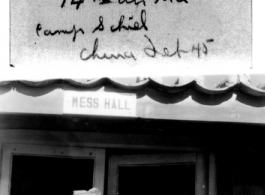 Camp Schiel
China Feb 45
MESS HALL